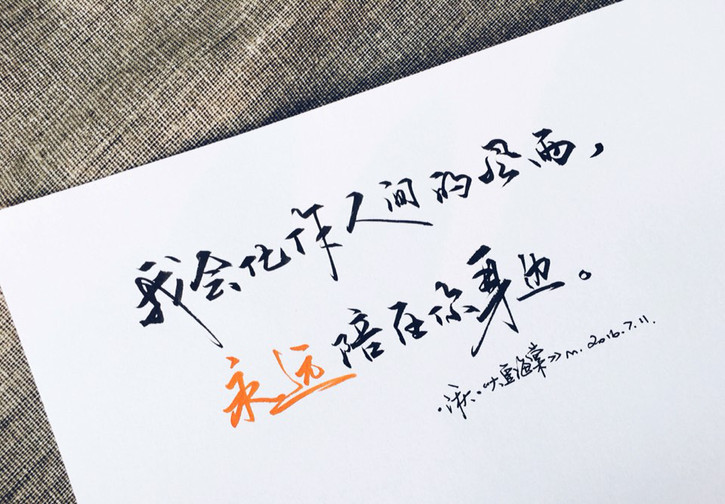 我会化作人间的风雨，
永远陪在你身边。
大鱼海棠》M. 2016.7.11.